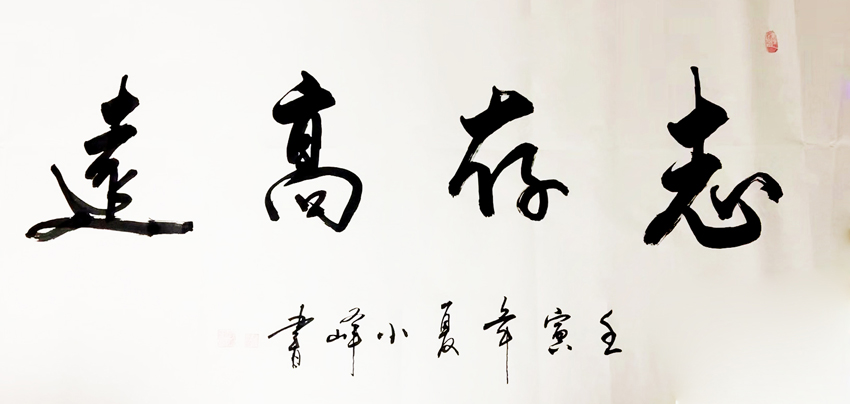 志存高遠
壬寅年夏小峰書